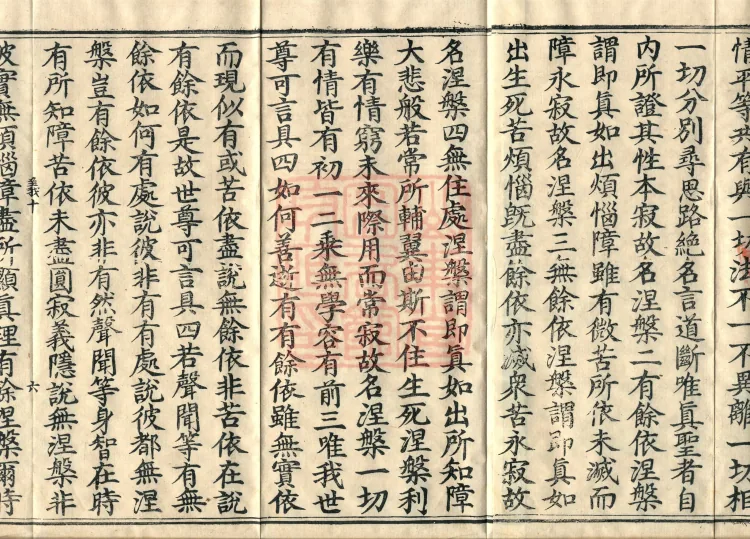 情平等共有與一切法不一不異離一切相
一切分別尋思路絕名言道斷唯眞聖者自
內所證其性本寂故名涅槃二有餘依涅槃
謂即眞如出煩惱障雖有微苦所依未滅而
障永寂故名涅槃三無餘依涅槃謂即眞如
出生死苦煩惱旣盡餘依亦滅衆苦永寂故
名涅槃四無住處涅槃謂即眞如出所知障
大悲般若常所輔翼由斯不住生死涅槃利
樂有情窮未來際用而常寂故名涅槃一切
有情皆有初一二乘無學容有前三唯我世
尊可言具四如何善逝有有餘依雖無實依
而現似有或苦依盡說無餘依非苦依在說
有餘依是故世尊可言具四若聲聞等有無
餘依如何有處說彼非有有處說彼都無涅
槃豈有餘依彼亦非有然聲聞等身智在時
有所知障苦依未盡圓寂義隱說無涅槃非
十 六
彼實無煩惱障盡所顯眞理有餘涅槃爾時